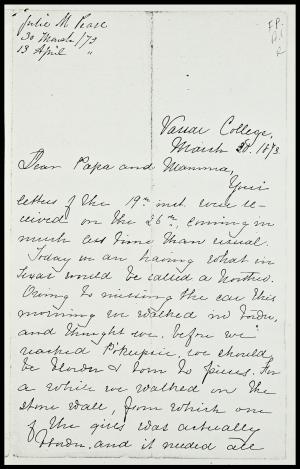 Julie M Pease
30 March /73
13 April "
Vassar College,
March 30. 1873
Dear Papa and Mamma,
Your
letters of the 19th inst. were re-
ceived on the 26th, coming in
much less time than usual.
Today we are having what in
Texas would be called a Norther.
Owing to missing the car this
morning we walked in town,
and thought we, before we
reached P'keepsie, we should
be blown & torn to pieces. For
a while we walked on the
stone wall, from which one
of the girls was actually
blown, and it needed all